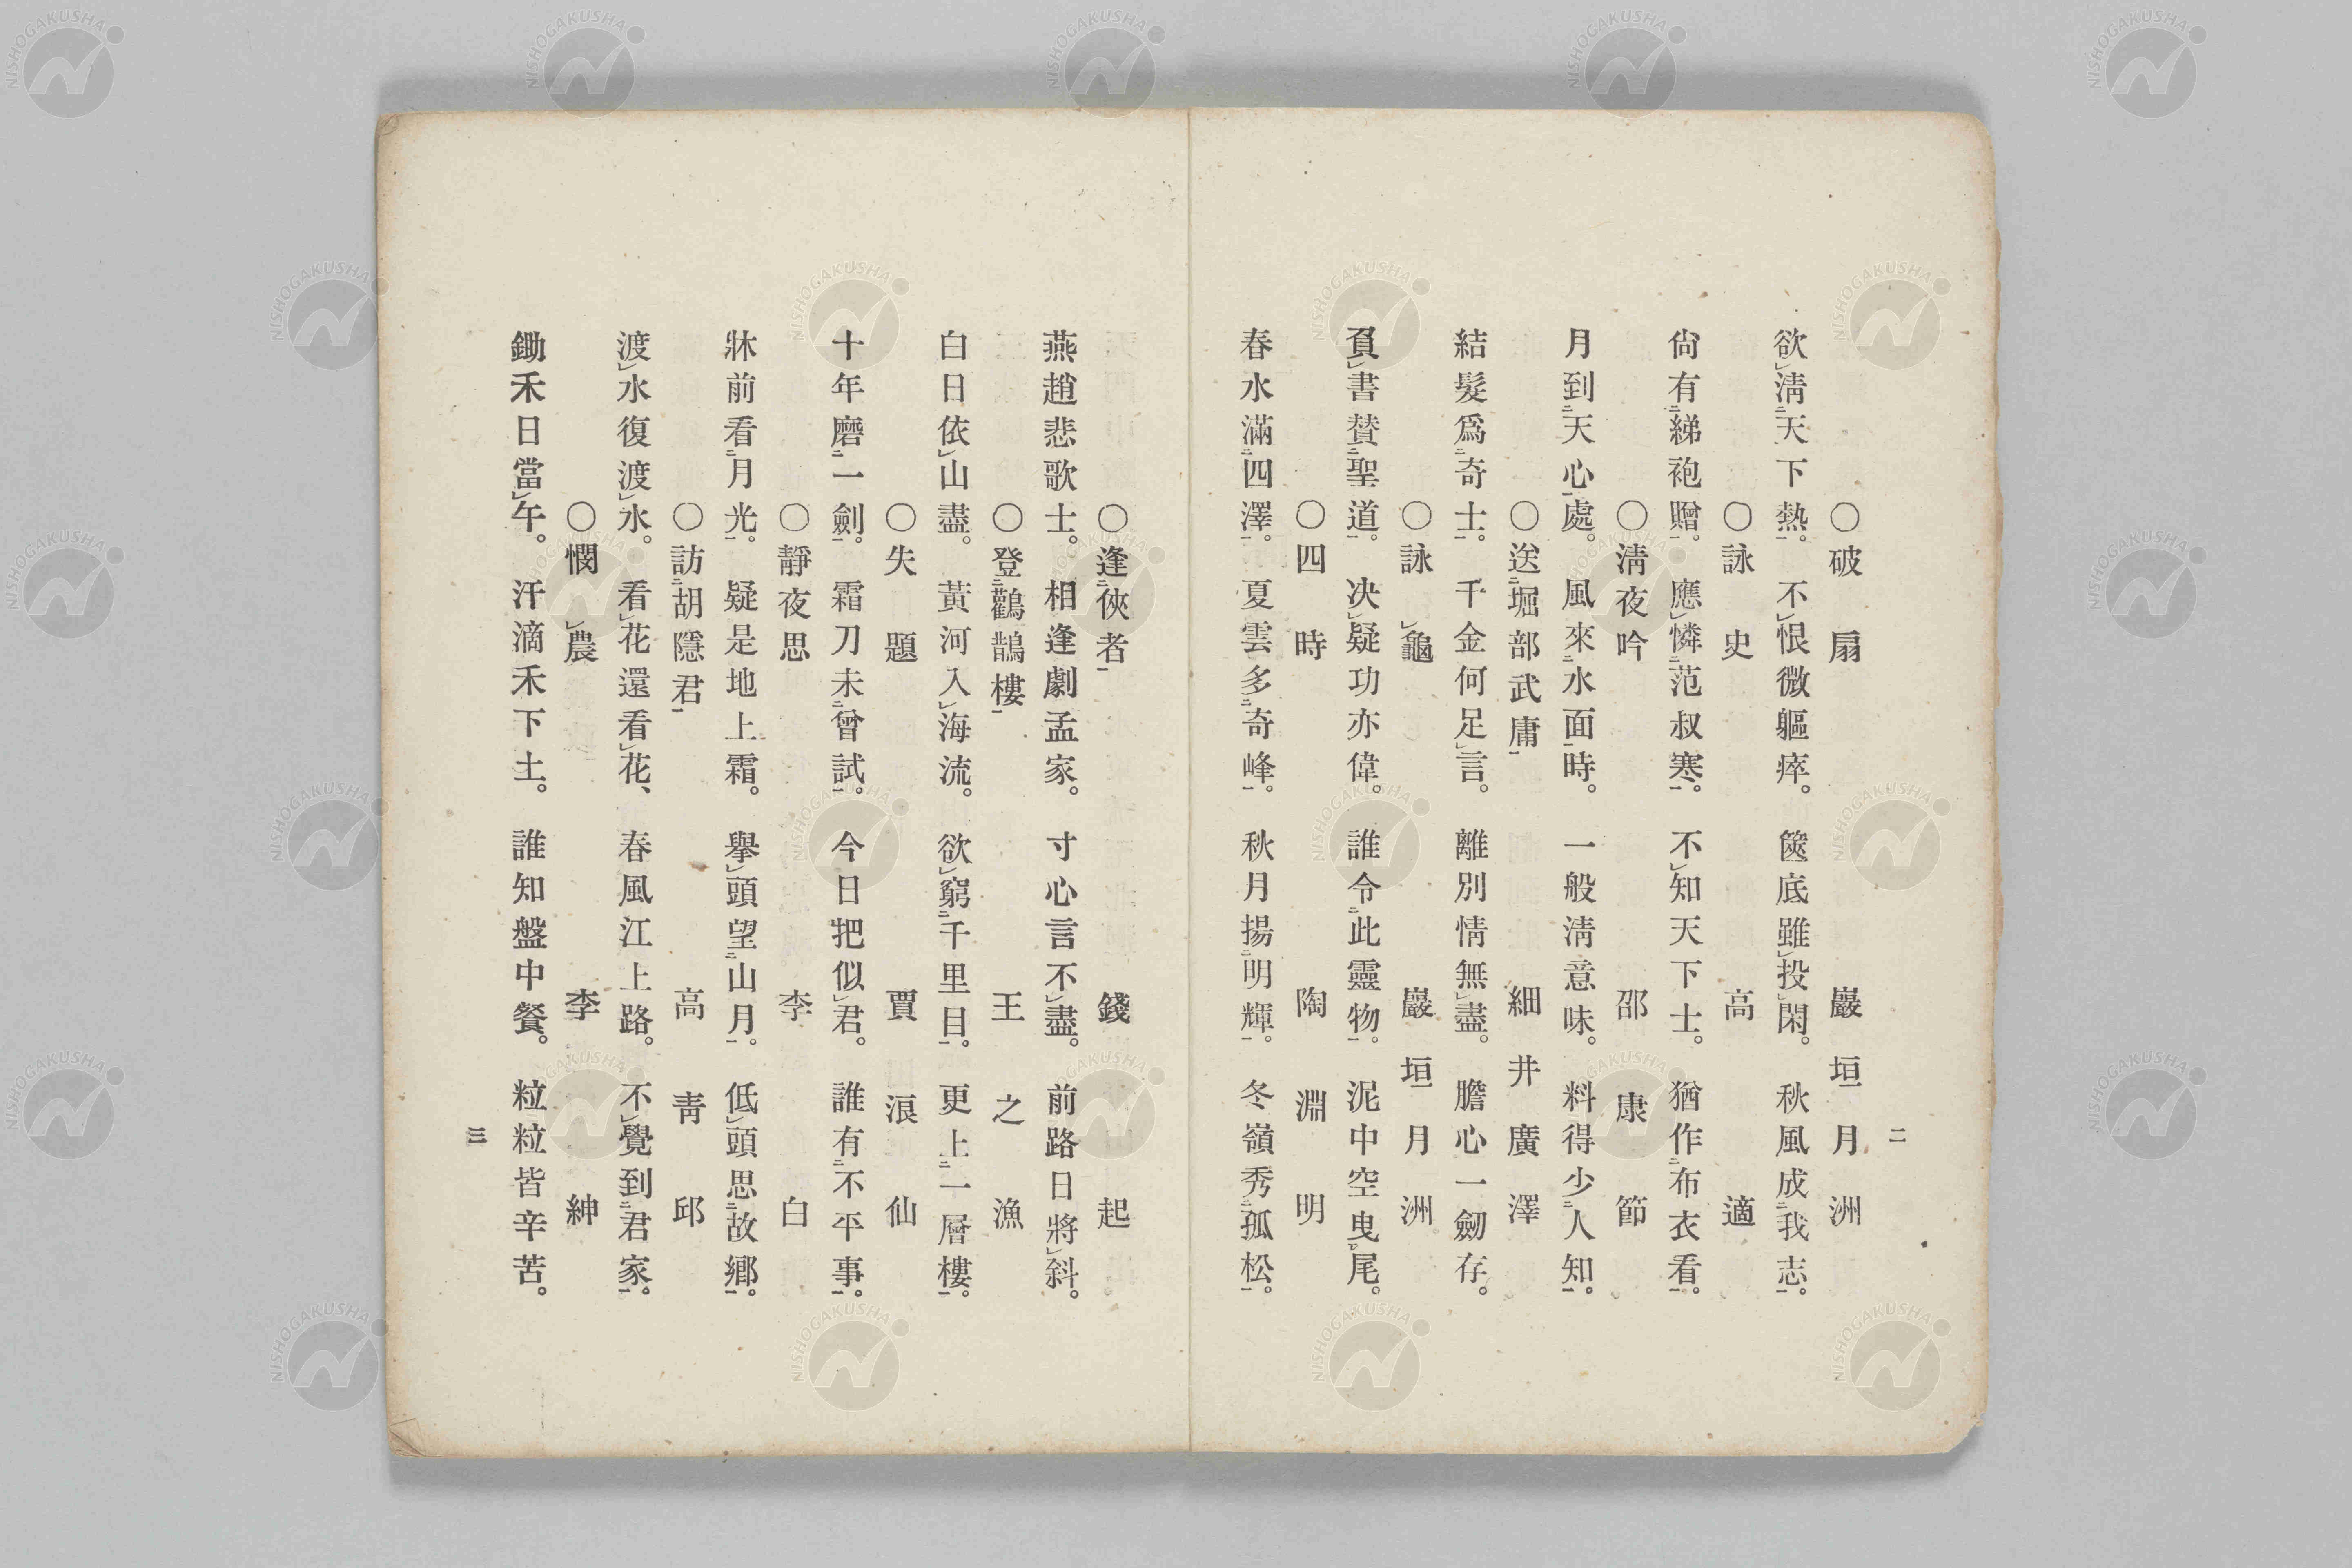 二
○破扇 巖垣月洲
欲㆑淸㆓天下熱㆒。不㆑恨微軀瘁。篋底雖㆑投㆑閑。秋風成㆓我志㆒。
○詠史 高適
尙有㆓綈袍贈㆒。應㆑憐㆓范叔寒㆒。不㆑知天下士。猶作㆓布衣看㆒。
○淸夜吟 邵康節
月到㆓天心㆒處。風來㆓水面㆒時。一般淸意味。料得少㆓人知㆒。
○送㆓堀部武庸㆒ 細井廣澤
結髮爲㆓奇士㆒。千金何足㆑言。離別情無㆑盡。膽心一劒存。
○詠㆑龜 巖垣月洲
負㆑書賛㆓聖道㆒。决㆑疑功亦偉。誰令㆓此靈物㆒。泥中空曳㆑尾。
○四時 陶淵明
春水滿㆓四澤㆒。夏雲多㆓奇峰㆒。秋月揚㆓明輝㆒。冬嶺秀㆓孤松㆒。
○逢㆓俠者㆒ 錢起
燕趙悲歌士。相逢劇孟家。寸心言不㆑盡。前路日將㆑斜。
○登㆓鸛鵲樓㆒ 王之渙
白日依㆑山盡。黃河入㆑海流。欲㆑窮㆓千里目㆒。更上㆓一層樓㆒。
○失題 賈浪仙
十年磨㆓一劍㆒。霜刀未㆓曾試㆒。今日把似㆑君。誰有㆓不平事㆒。
○靜夜思 李白
牀前看㆓月光㆒。疑是地上霜。擧㆑頭望㆓山月㆒。低㆑頭思㆓故鄉㆒。
○訪㆓胡隱君㆒ 高靑邱
渡㆑水復渡㆑水。看㆑花還看㆑花、春風江上路。不㆑覺到㆓君家㆒。
○憫㆑農 李紳
鋤禾日當㆑午。汗滴禾下土。誰知盤中餐。粒粒皆辛苦。
三
NISHOGAKUSHA